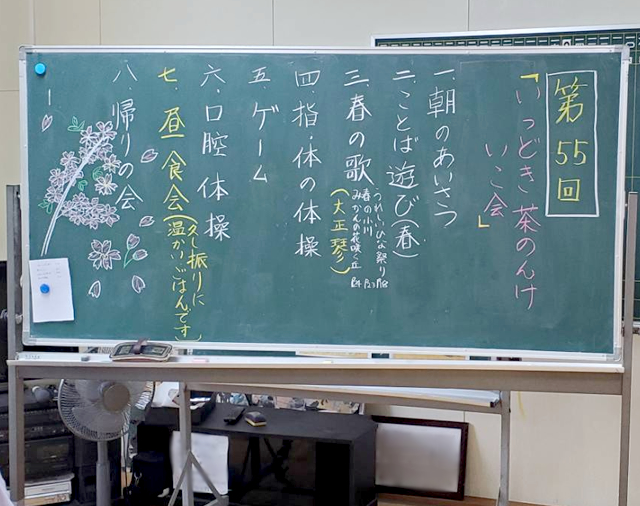 第55回
「いっどき茶のんけ
いこ会」
一、朝のあいさつ
二、ことば遊び(春)
三、春の歌
うれしいひな祭り
春の小川
みかんの花咲く丘
(大正琴)
四、指・体の体操
五、ゲーム
六、口腔体操
七、昼食会(久し振りに
温かいごはんです)
八、帰りの会